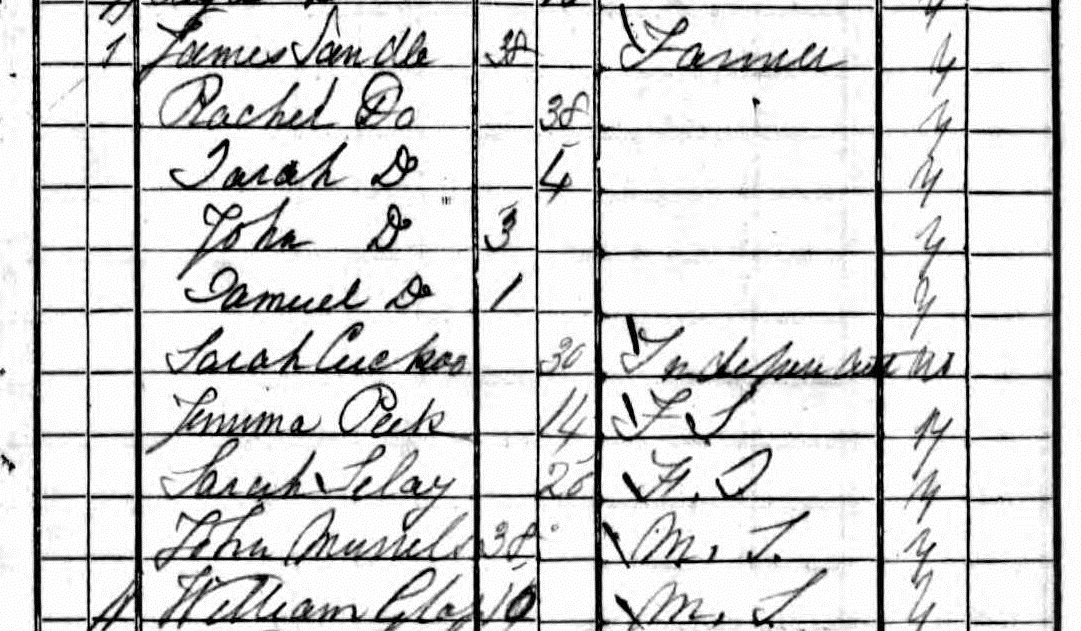 1 James Sandle 38 Farmer y
Rachel Do 38 y
Sarah Do 4 y
John Do 3 y
Samuel Do 1 y
Sarah Cuckoo 30 Independent no
Jemima Peek 14 F. S. y
Sarah Selay F. S. y
John Mussels 38 M. S. y
William M. S. y